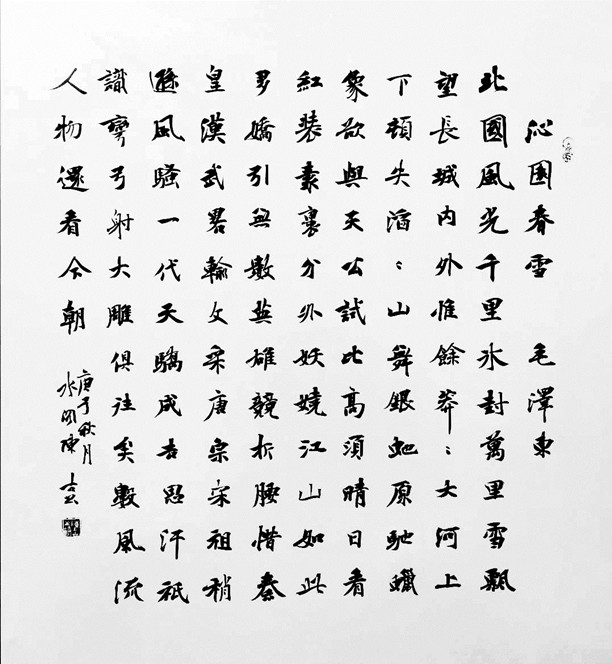 沁園春雪 毛澤東
北國風光千里冰封萬里雪飄
望長城內外惟餘莽〻大河上
下頓失滔〻山舞銀蛇原馳蠟
象欲與天公試比高須晴日看
紅裝素裹分外妖嬈江山如此
多嬌引無數英雄競折腰惜秦
皇漢武畧輸文采唐宗宋祖稍
遜風騷一代天驕成吉思汗祇
識彎弓射大雕俱往矣數風流
人物還看今朝
庚子秋月
水陳